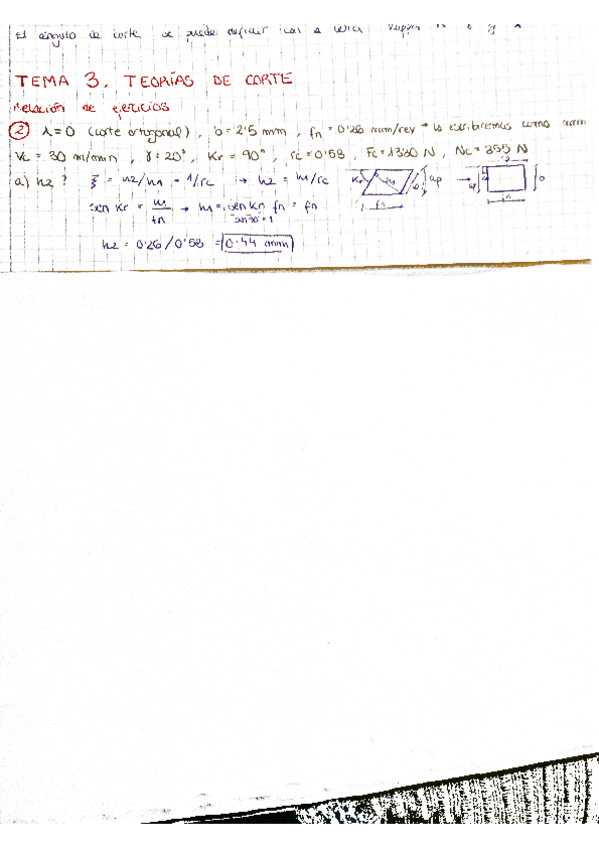 El ángulo de corte se puede definir
TEMA 3. TEORÍAS DE CORTE
relación de ejercicios
② λ=0 (corte ortogonal), b=2'5 mm, fn=0'26 mm/rev → lo escribiremos como mm
Vc = 30 m/min, γ=20°, Kr = 90°, rc=0'58, Fc=1330 N, Nc=355 N
a) h2? ξ = h2/h1 = 1/rc → h2 = h1/rc
sen Kr = h1/fn → h1 = sen Kr fn = fn
sen 90°=1
h2 = 0'26/0'58 = 0'44 mm
Kr h1 b ap ap b
fn fn